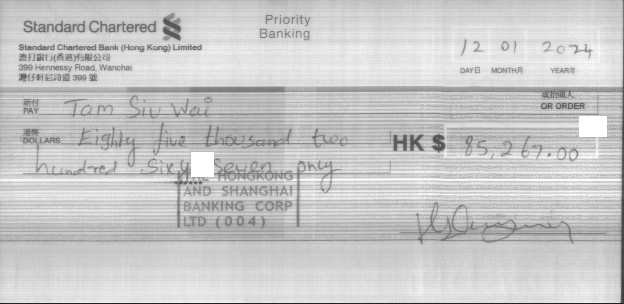 Standard Chartered
Priority
Banking
Standard Chartered Bank (Hong Kong) Limited
渣打銀行(香港)有限公司
399 Hennessy Road, Wanchai
灣仔軒尼詩道 399 號
12 01 2024
DAY日 MONTH月 YEAR年
祈付
PAY
Tam Siu Wai
或持票人
OR ORDER
港幣
DOLLARS
Eighty five thousand two
hundred Sixty Seven only
HK $ 85,267.00
HONGKONG
AND SHANGHAI
BANKING CORP
LTD (004)